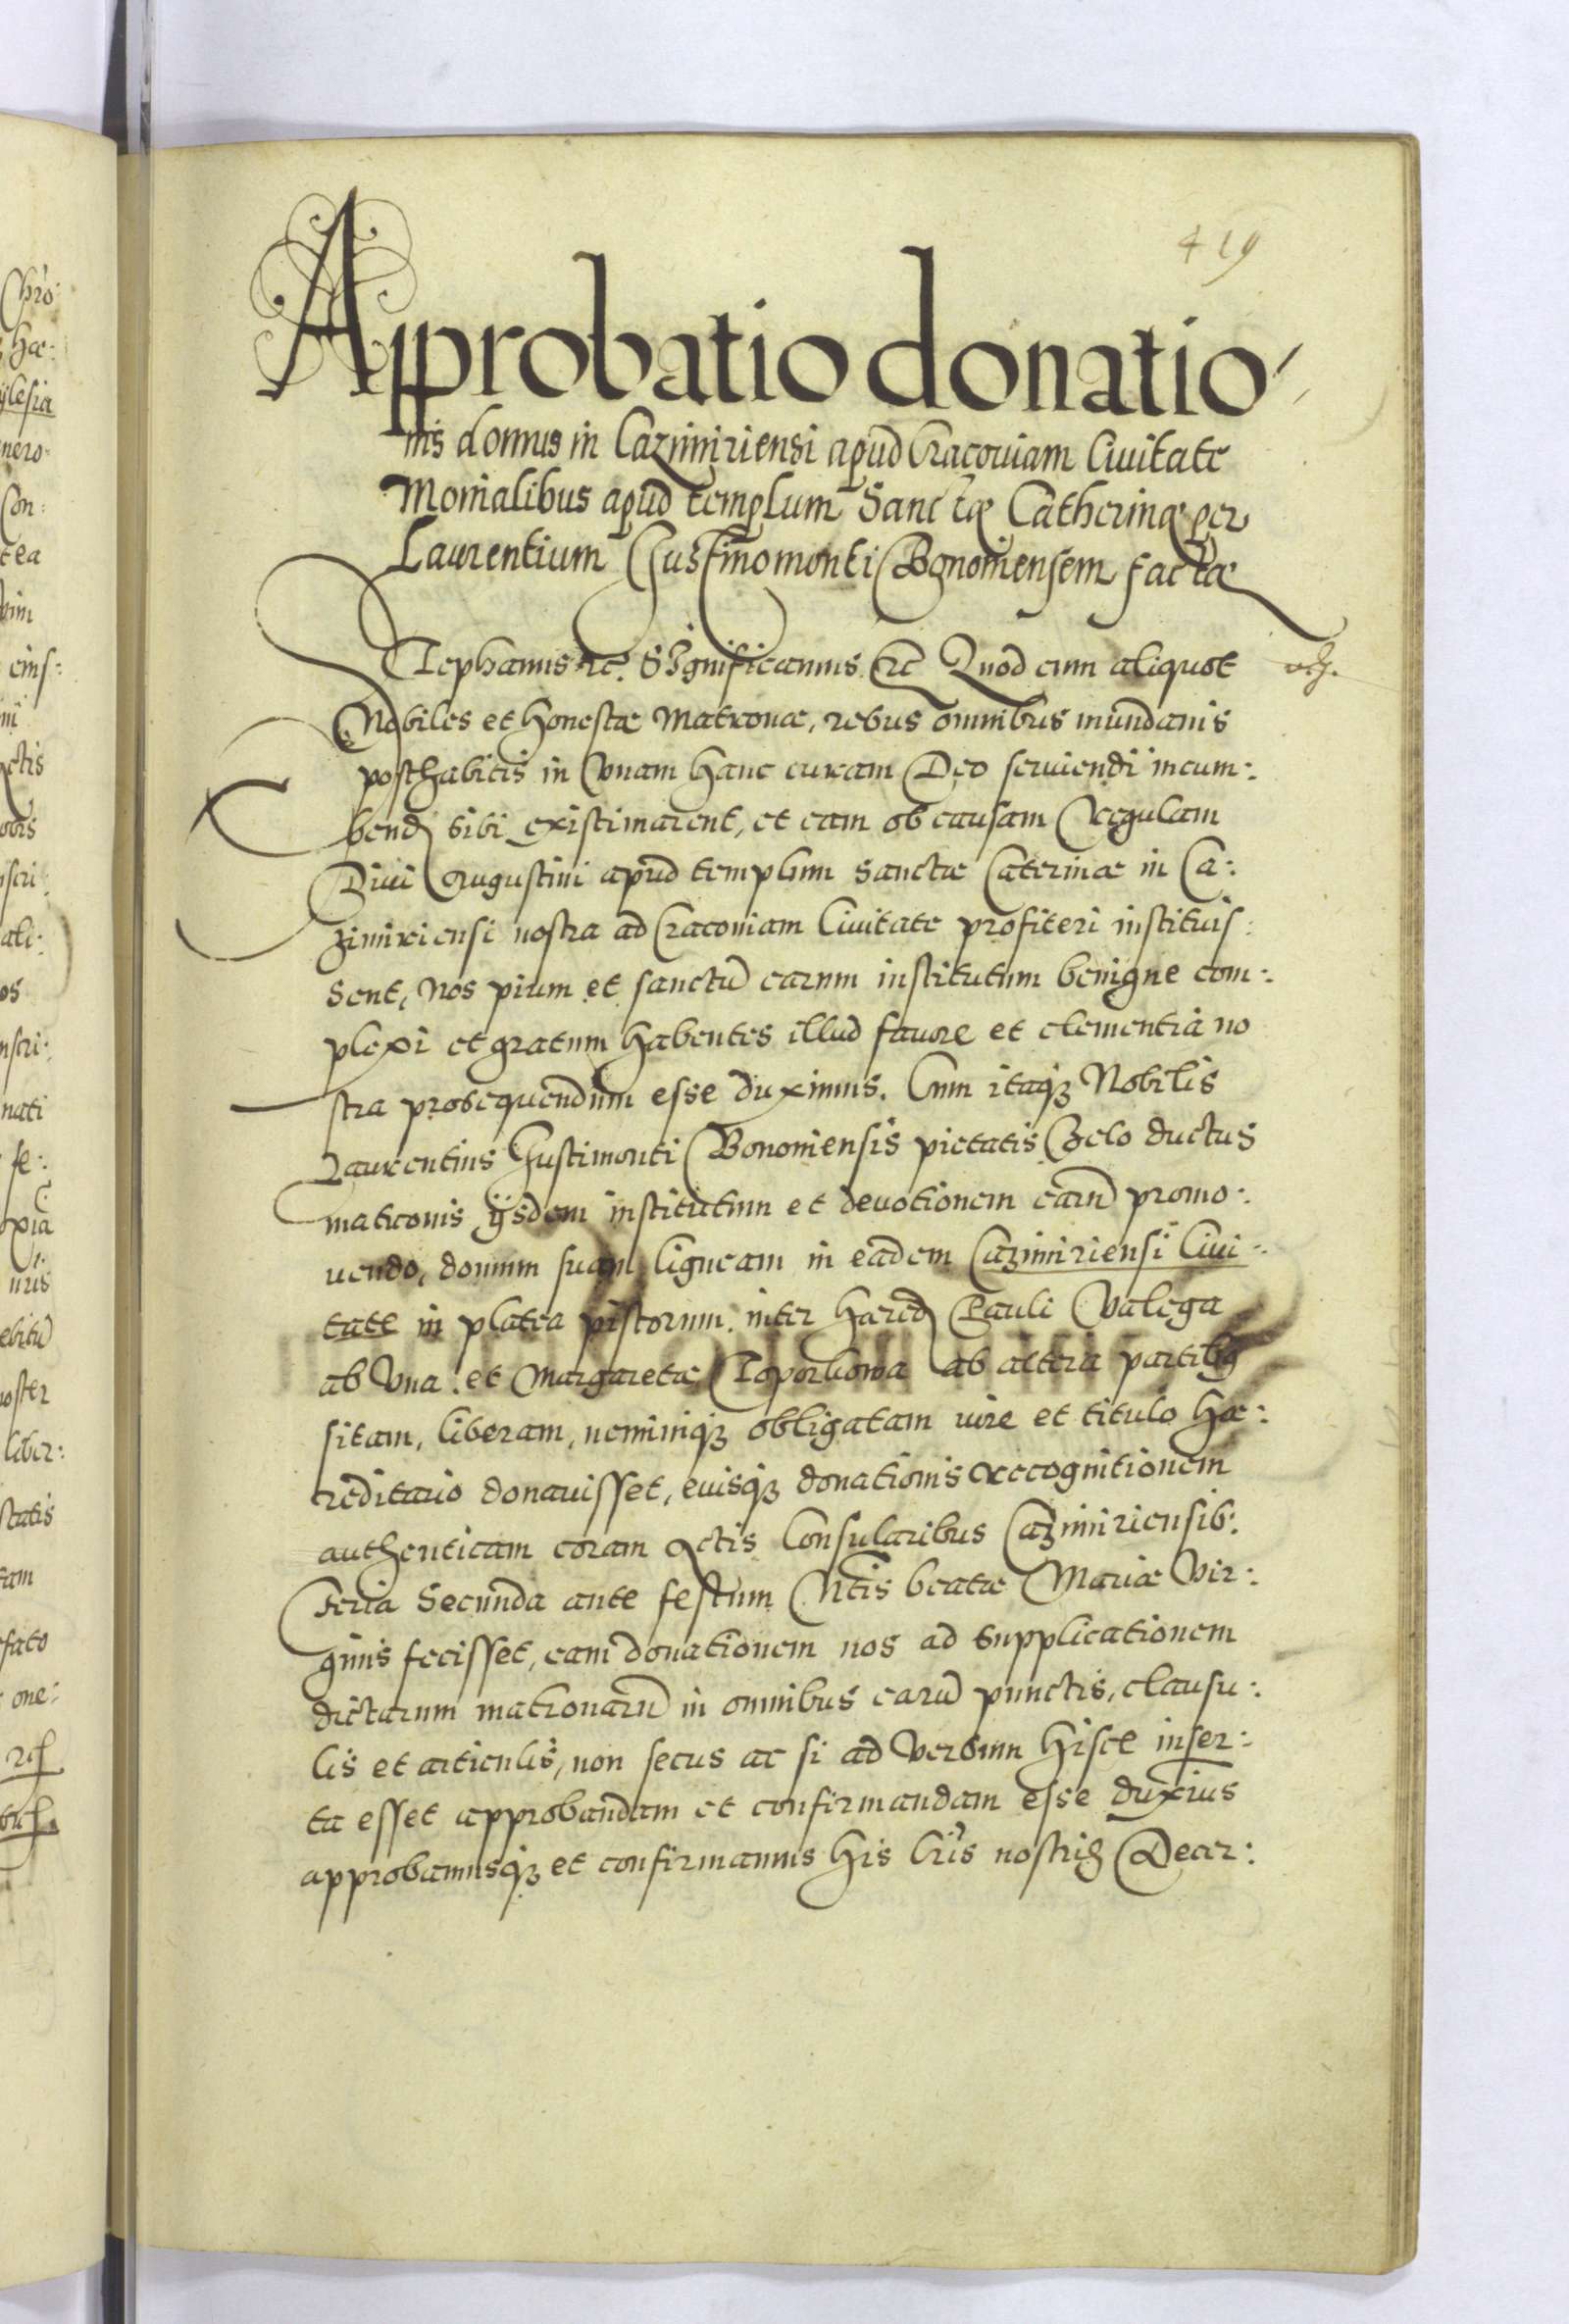 419
Approbatio donatio
nis domus in Cazimiriensi apud Cracouiam Ciuitate
Monialibus apud templum Sanctæ Catherinæ per
Laurentium Justinomonti Bononiensem factæ
Stephanus etc. Significamus etc Quod cum aliquot
Nobiles et honestæ Matronæ, rebus omnibus mundanis
posthabitis in Vnam hanc curam Deo seruiendi incum:
bend sibi existimarent, et eam ob causam Regulam
Diui Augustini apud templum Sanctæ Caterinæ in Ca:
zimiriensi nostra ad Cracouiam Ciuitate profiteri instituis:
sent, Nos pium et sanctū earum institutum benigne com:
plexi et gratum habentes illud fauore et clementia no
stra prosequendum esse duximus. Cum itaqȝ Nobilis
Laurentius Justimonti Bononiensis pietatis Zelo ductus
matronis ijsdem institutum et deuotionem earū promo:
uendo, domum suam ligneam in eadem Cazimiriensi Ciui:
tate in platea pistorum, inter hæred Pauli Valega
ab Vna et Margaretæ Toporkowa ab altera partibȝ
sitam, liberam, neminiqȝ obligatam iure et titulo hæ:
reditario donauisset, euisqȝ donationis recognitionem
authenticam coram Actis Consularibus Cazimiriensib:
Feria Secunda ante festum Ntis beatæ Mariæ Vir:
ginis fecisset, eam donationem nos ad supplicationem
dictarum matronarū in omnibus earū punctis, clausu:
lis et articulis, non secus ac si ad Verbum hisce inser:
ta esset approbandam et confirmandam esse duxius
approbamusqȝ et confirmamus his lrīs nostris Decer: